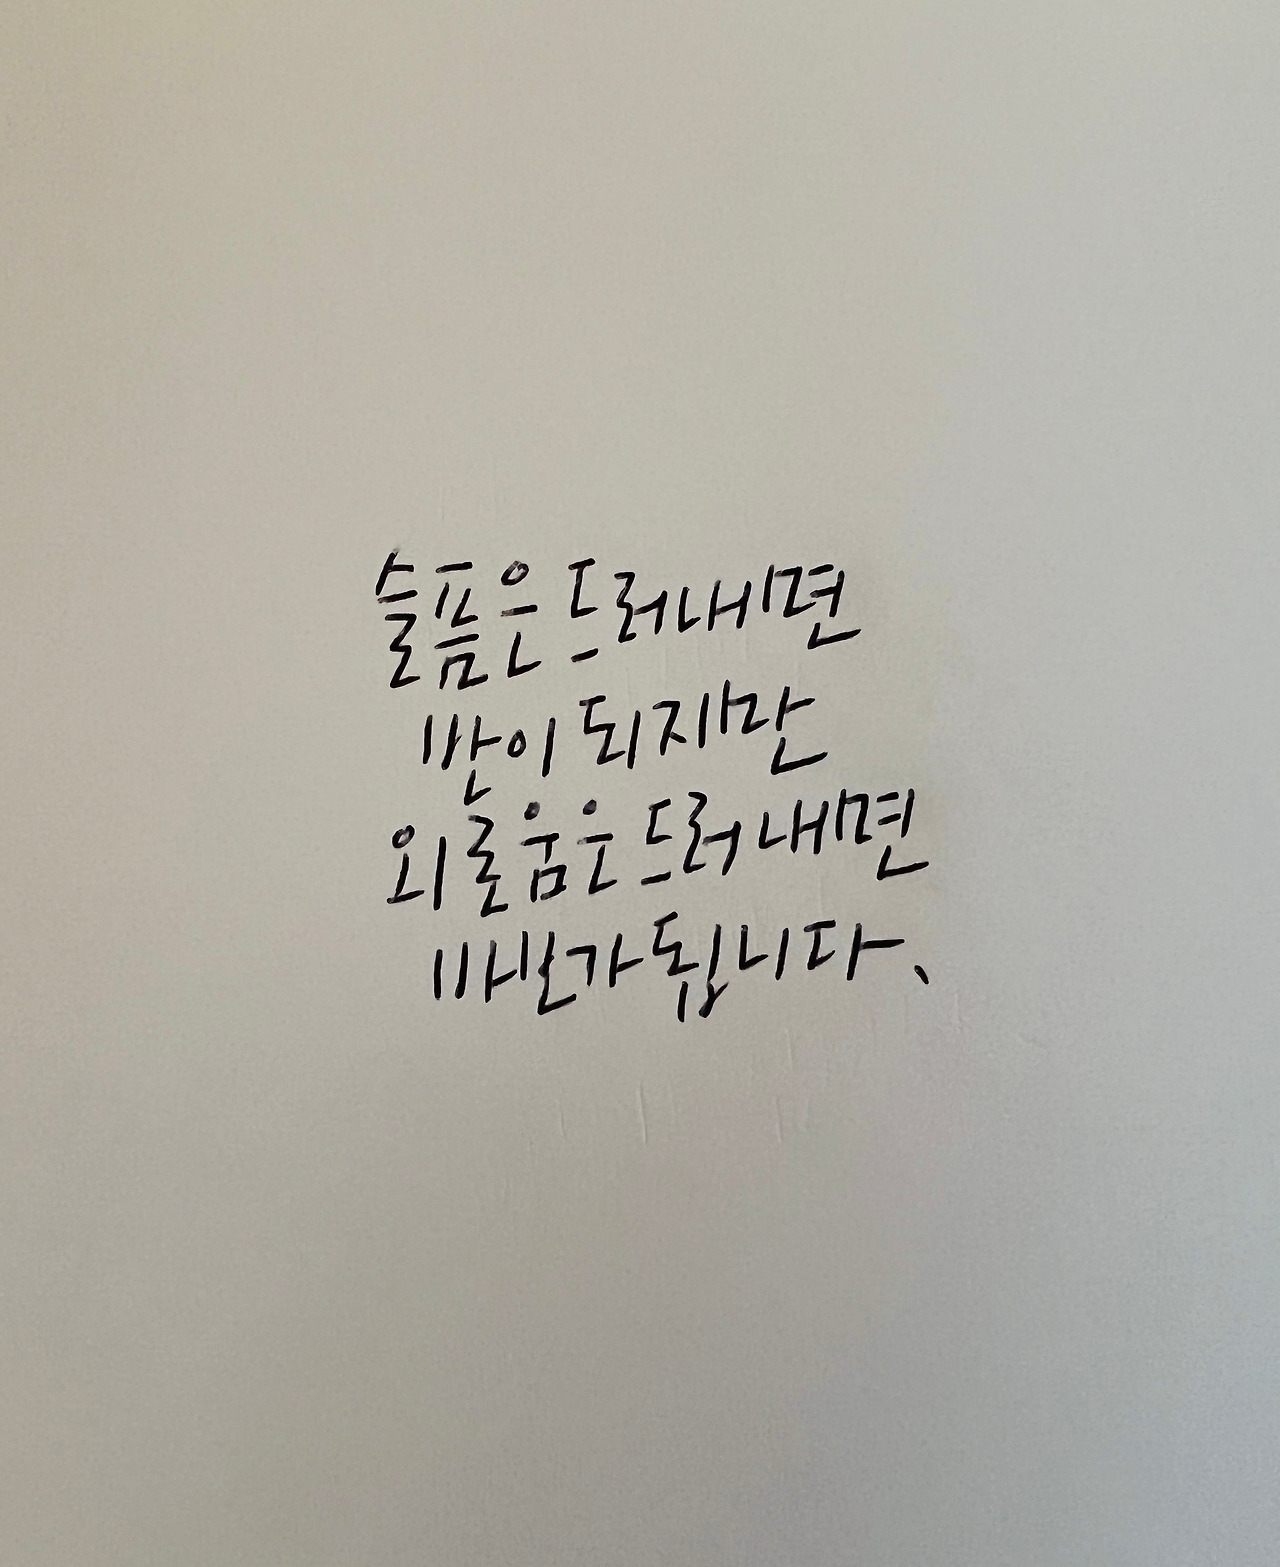 슬픔은 드러내면
반이 되지만
외로움은 드러내면
배가 됩니다.